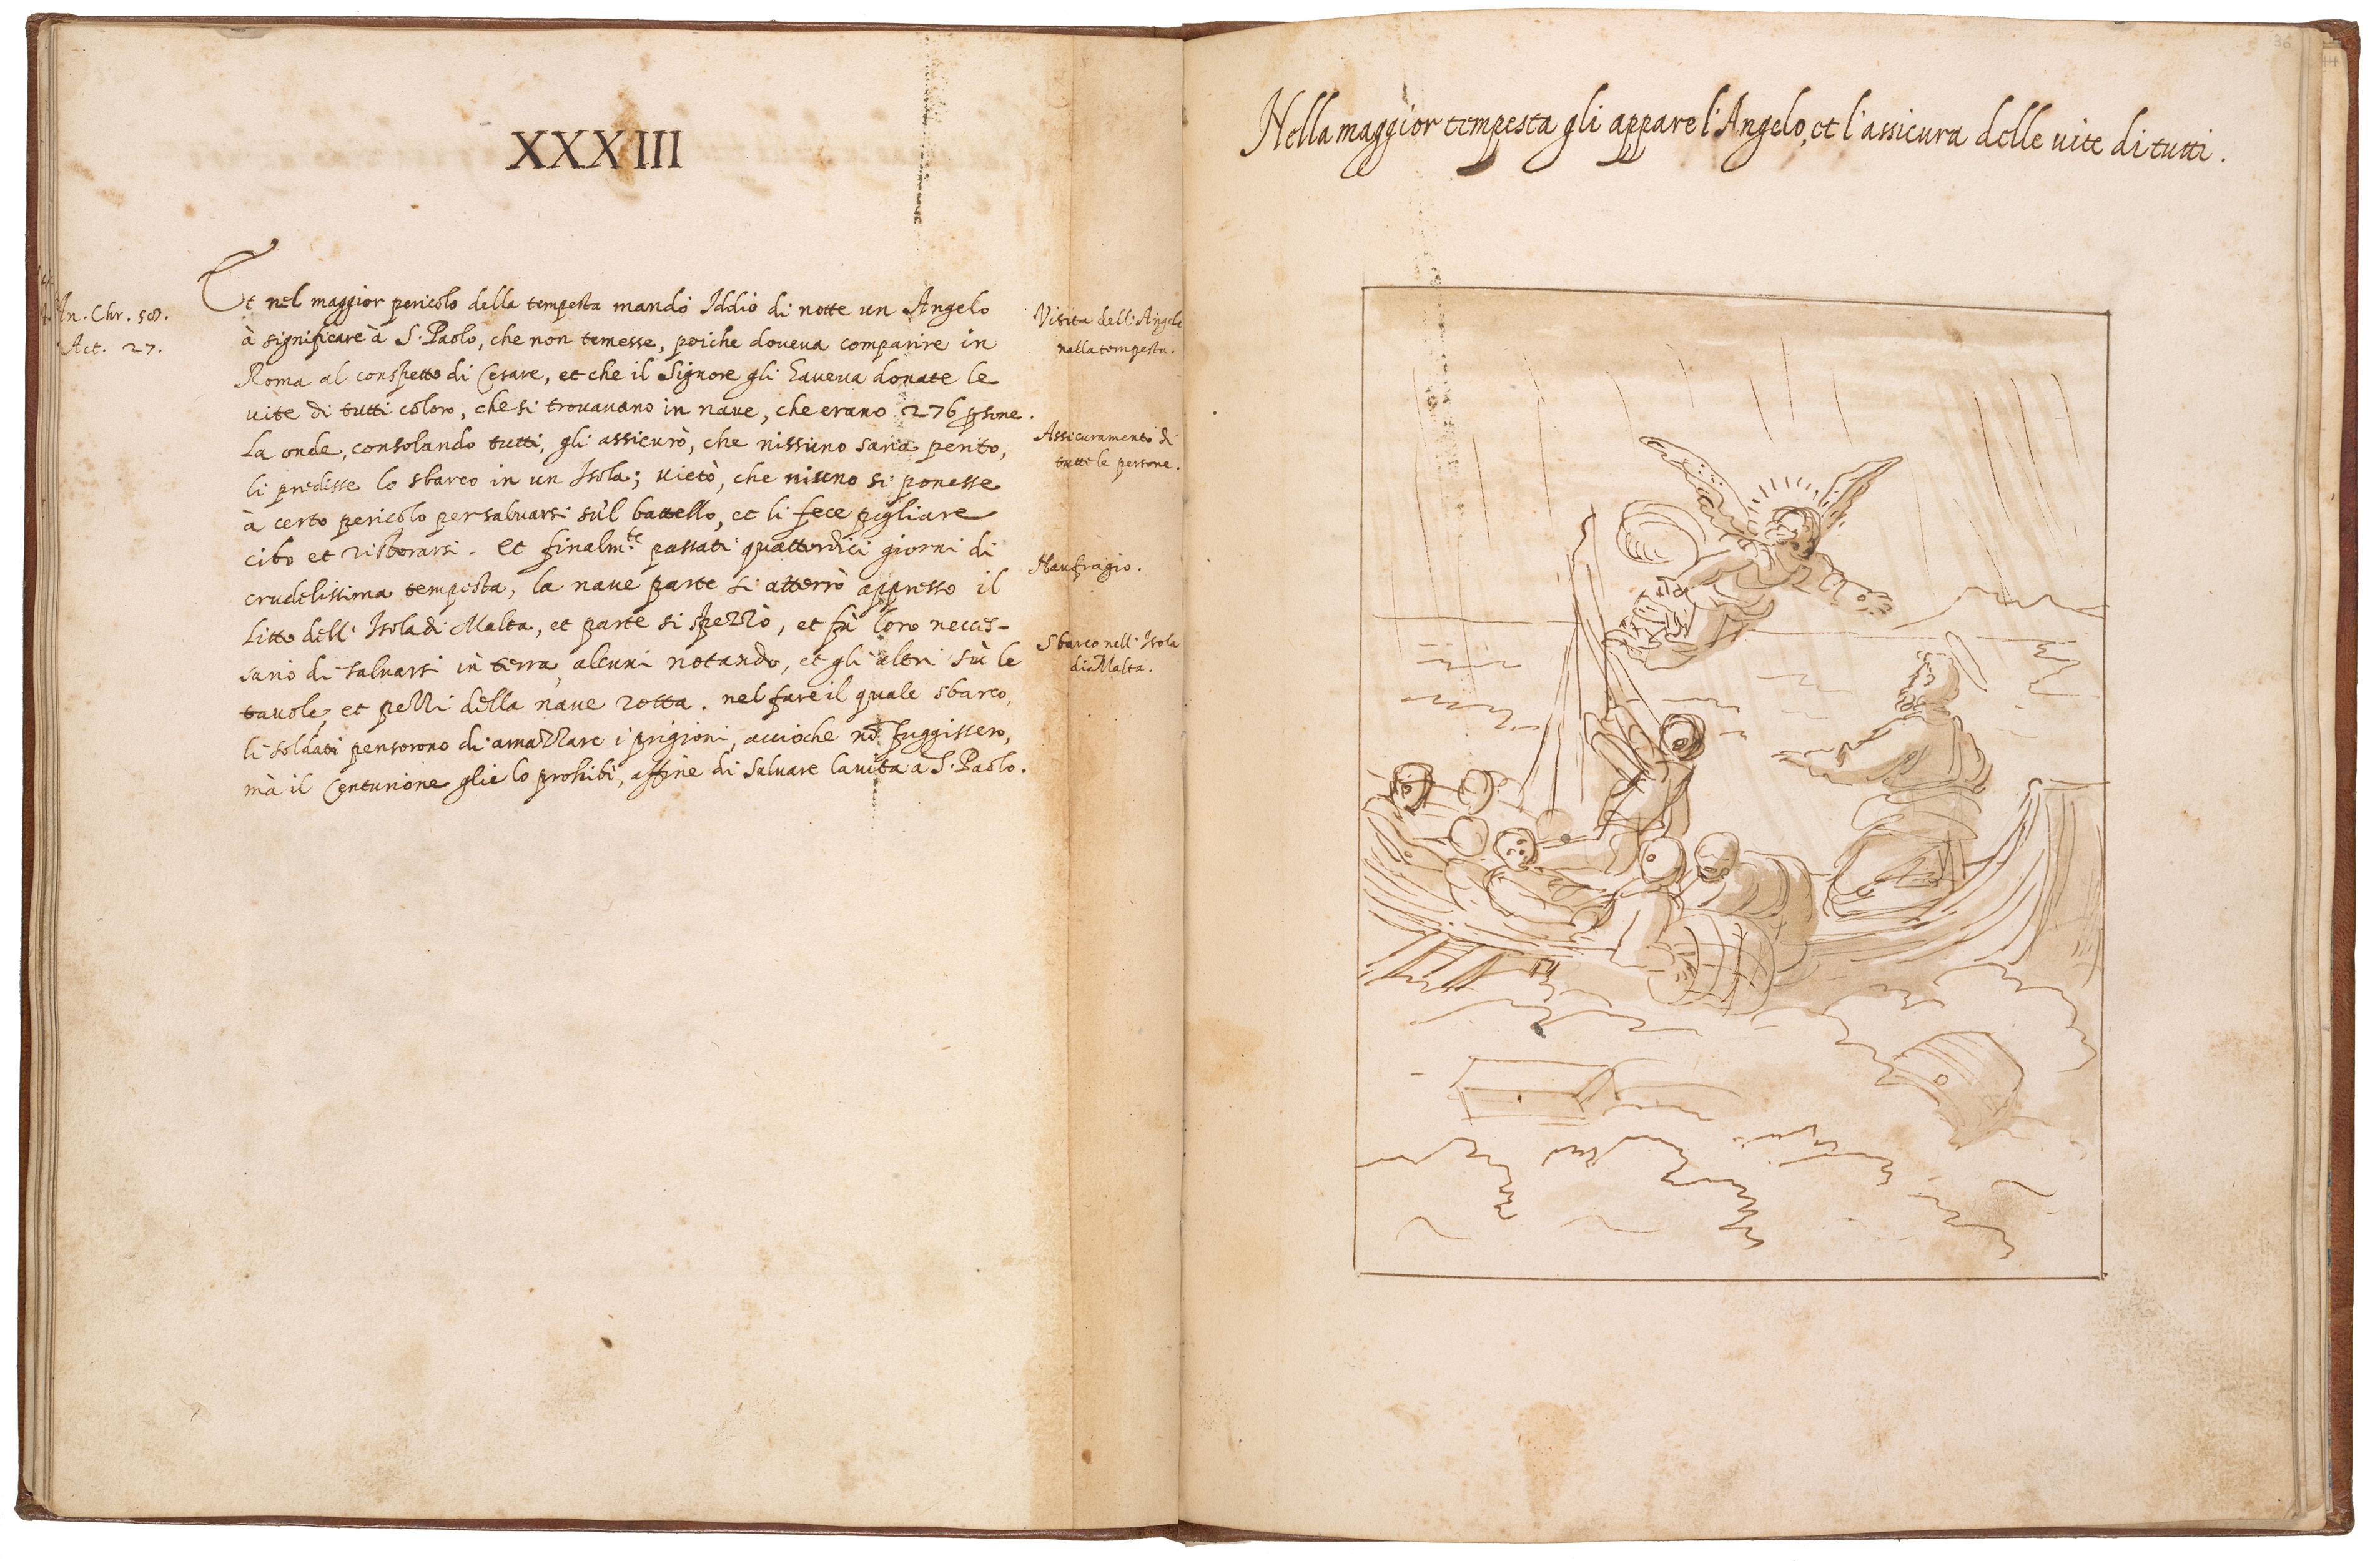 XXXIII
An. Chr. 58.
Act. 27.
Et nel maggior pericolo della tempesta mandò Iddio di notte un Angelo
à significare à S. Paolo, che non temesse, poiche doveva comparire in
Roma al conspetto di Cesare, et che il Signore gli haveva donate le
vite di tutti coloro, che si trovavano in nave, che erano 276 psone.
La onde, consolando tutti, gli assicurò, che nissuno saria perito,
li predisse lo sbarco in un Isola; vietò, che niuno si ponesse
à certo pericolo per salvarsi sù'l battello, et li fece pigliare
cibo et ristorarsi. Et finalmte passati quattordici giorni di
crudelissima tempesta, la nave parte si atterrò appresso il
Litto dell' Isola di Malta, et parte si spezzò, et fù loro necces-
sario di salvarsi in terra, alcuni notando, et gli altri sù le
tavole, et pezzi della nave rotta. nel fare il quale sbarco,
li soldati pensorono di amazzare i prigioni, accioche nō fuggissero,
mà il Centurione glie lo prohibì, affine di salvare la vita a S. Paolo.
Visita dell' Angelo
nella tempesta.
Assicuramento di
tutte le persone.
Naufragio.
Sbarco nell' Isola
di Malta.
36
Nella maggior tempesta gli appare l'Angelo, et l'assicura delle vite di tutti.